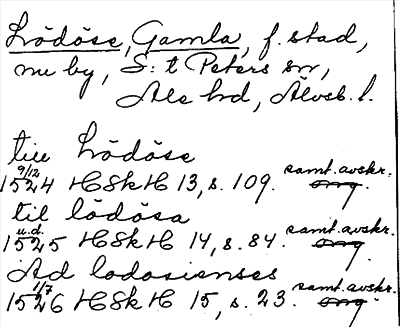 Lödöse, Gamla, f. stad,
nu by, S:t Peters sn,
Ale hd, Älvsb. l.
till Lödöse
9/12 1524 HSkH 13, s. 109. samt. avskr. orig.
til lödösa
u.d. 1525 HSkH 14, s. 84. samt. avskr. orig.
Ad lodosienses
1/7 1526 HSkH 15, s. 23. samt. avskr. orig.